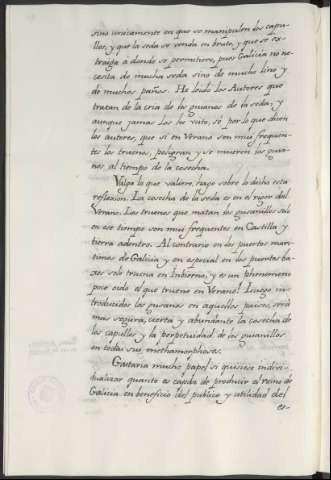 sino unicamente en que se manipulen los capu-
llos, y que la seda se venda en bruto, y que se ex-
traiga a donde se permitiere, pues Galicia no ne-
cesita de mucha seda sino de mucho lino y
de muchos paños. He leido los Autores que
tratan de la cria de los gusanos de la seda; y
aunque jamas los he visto, sé por lo que dicen
los autores, que si en Verano son mui frequen-
tes los truenos, peligran y se mueren los gusa-
nos, al tiempo de la cosecha.
Valga lo que valiere, hago sobre lo dicho esta
reflexion. La cosecha de la seda es en el rigor del
Verano. Los truenos que matan los gusanillos solo
en ese tiempo son mui frequentes en Castilla y
tierra adentro. Al contrario en los puertos mari-
timos de Galicia y en especial en los puertos ba-
xos solo truena en Imbierno, y es un phenomeno
poco oido el que truene en Verano. Luego in-
troducidos los gusanos en aquellos paises, será
mas segura, cierta y abundante la cosecha de
los capillos y la perpetuidad de los gusanillos
en todas sus methamorphoses.
Gastaria mucho papel si quisiese indivi-
dualizar quanto es capáz de producir el reino de
Galicia en beneficio del publico y utilidad del
es-